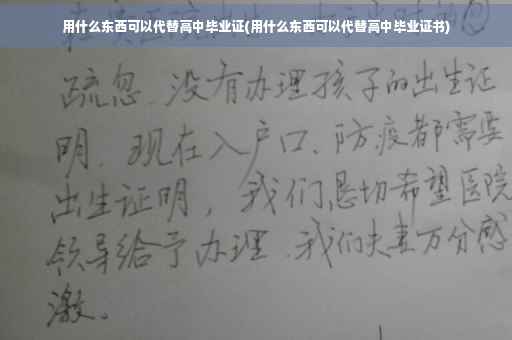 用什么东西可以代替高中毕业证(用什么东西可以代替高中毕业证书)
疏忽、没有办理孩子的出生证
明、现在入户口、防疫都需要
出生证明，我们恳切希望医院
领导给予办理、我们夫妻万分感
激。